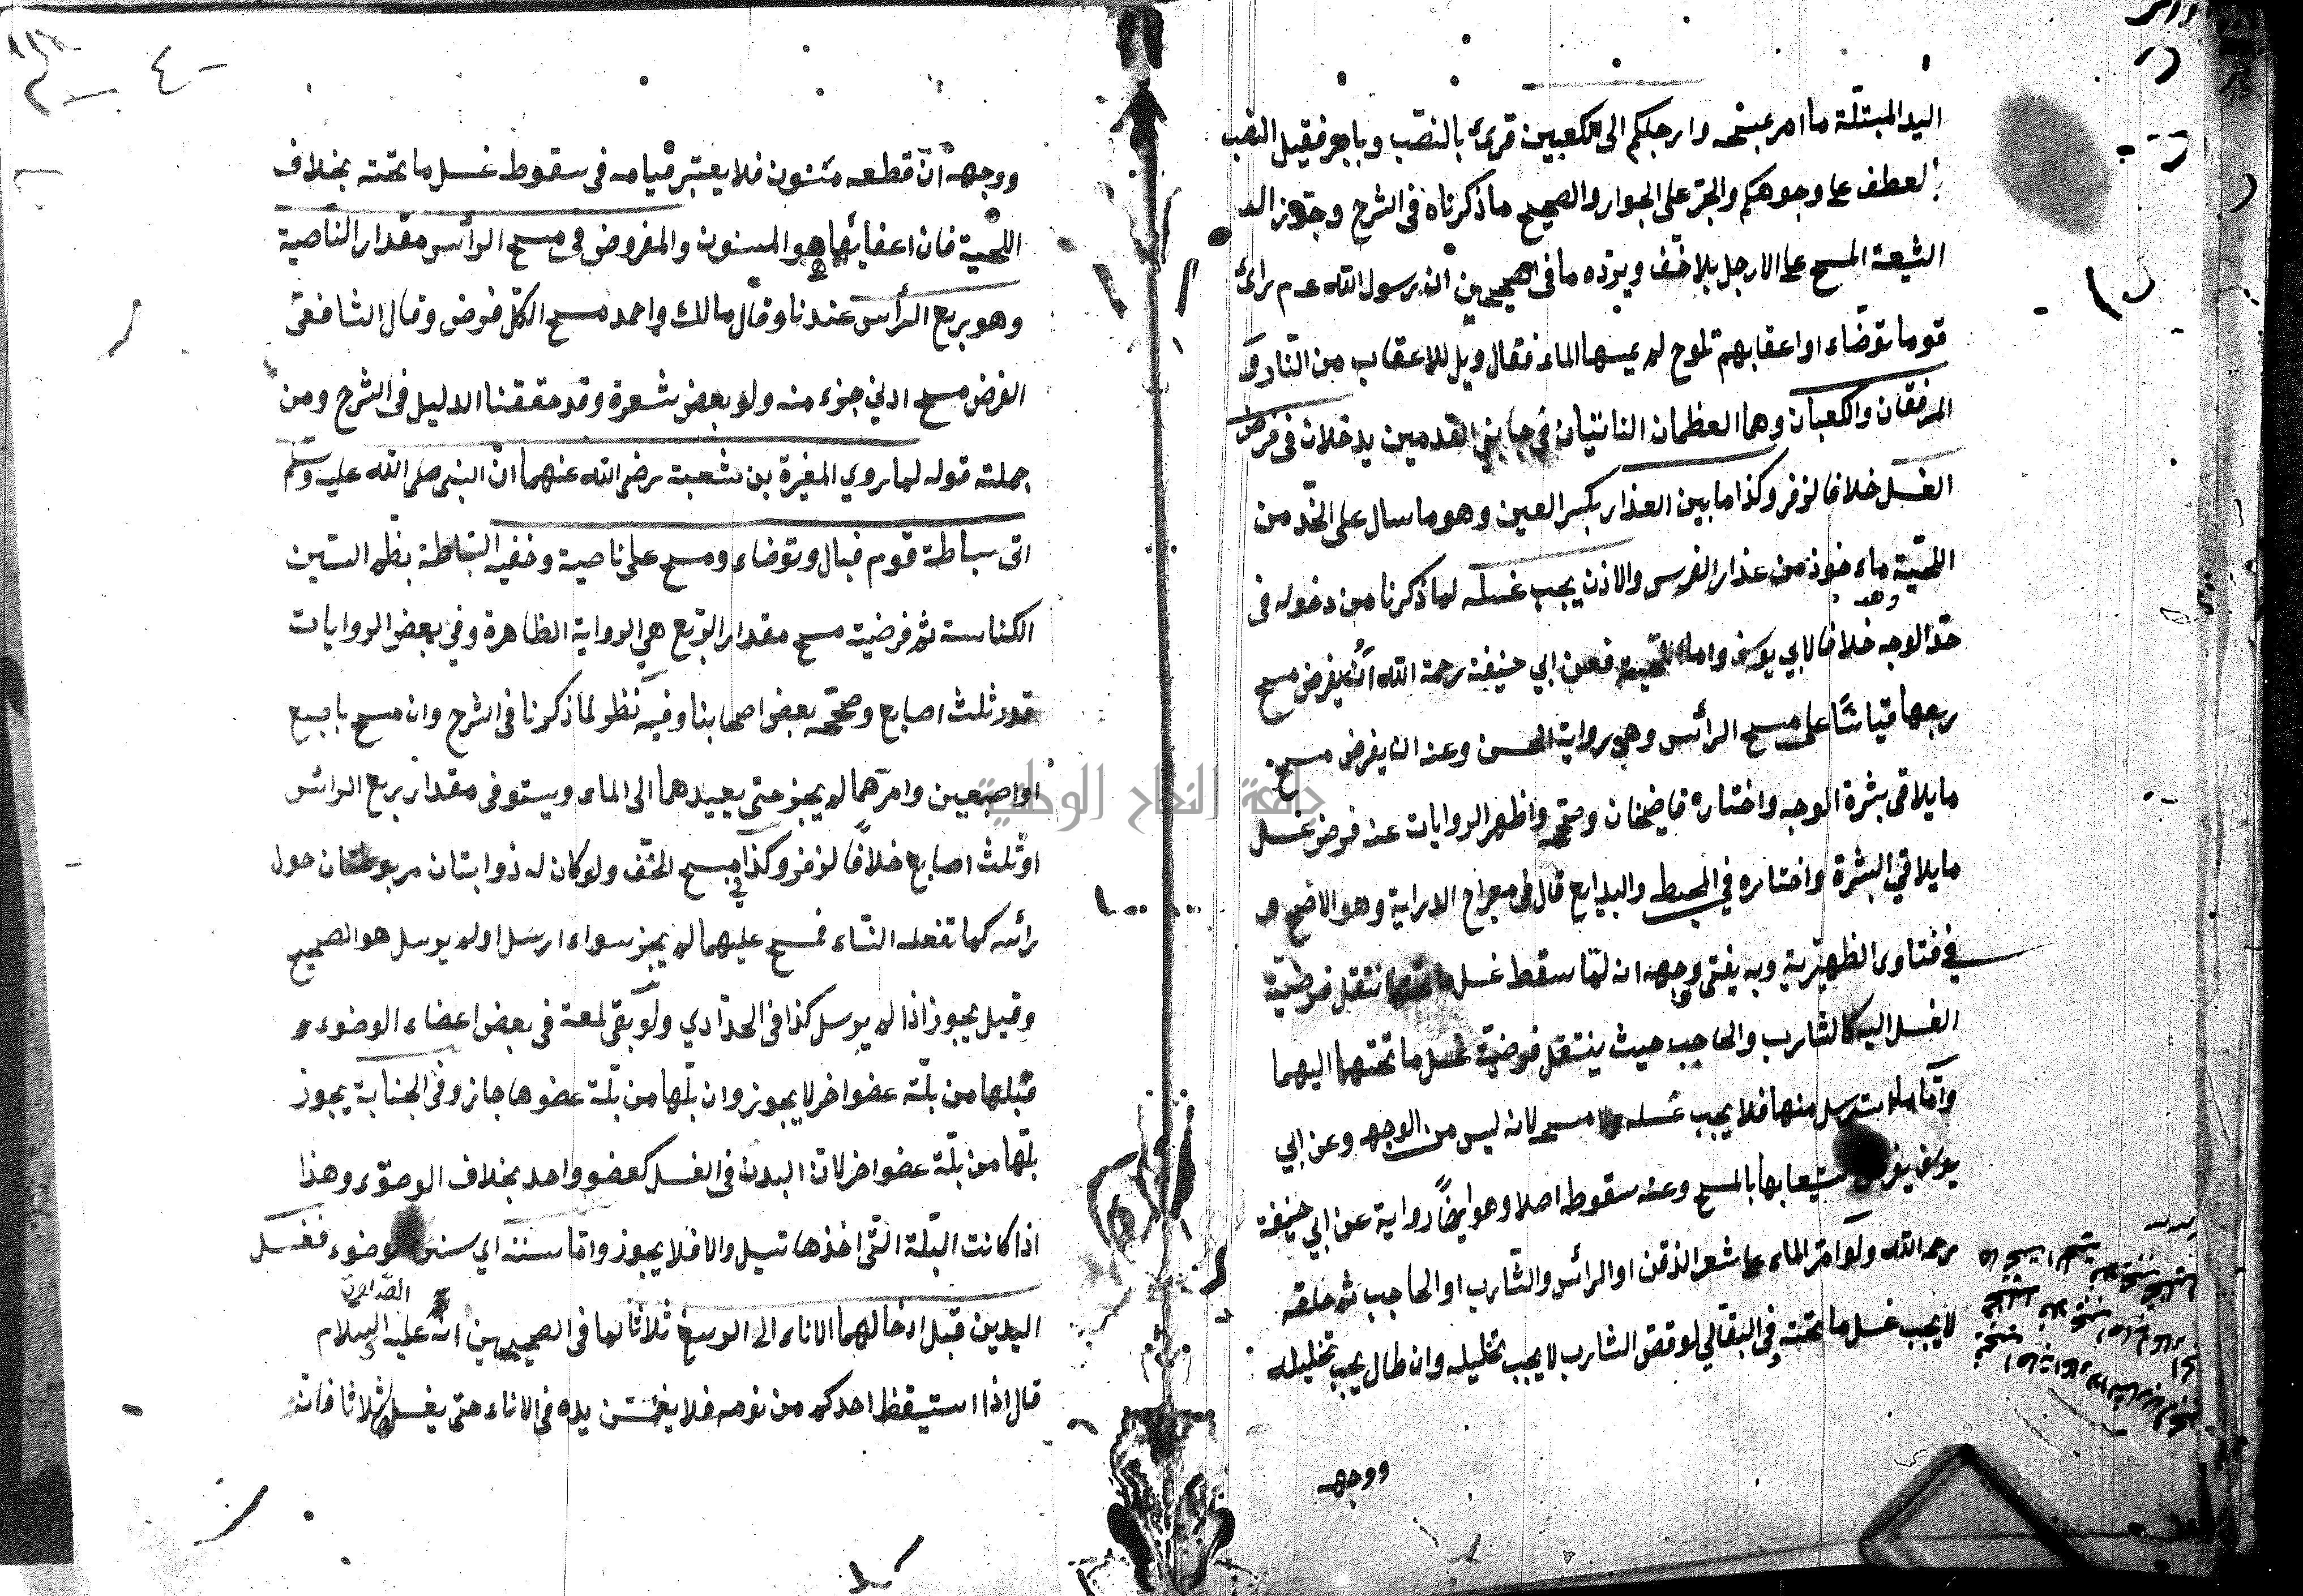 اليد المبتلّة ما امر عبنحه وارجلكم الى الكعبين قرئ بالنصب وبالجر فقيل النصب
لعطف على وجوهكم والجر على الجوار والصحيح ما ذكرناه فى الشرح وجوّز
الشيعة المسح على الارجل بلا خف ويردّه ما فى الصحيحين ان رسول الله عم رأى
قوما توضاء او اعقابهم تلوح لم يمسها الماء فقال ويل للاعقاب من النار و
المرفقان والكعبان وهما العظمان الناتئان فى جانبي القدمين يدخلان فى فرض
الغسل خلافا لزفر وكذا ما بين العذار بكسر العين وهو ما سال على الخد من
اللحية ماءخوذ من عذار الفرس والاذن يجب غسله لما ذكرنا من دخوله فى
حد الوجه خلافا لابي يوسف واما اللحية فعن ابي حنيفة رحمة الله انه يفرض مسح
ربعها قياسًا على مسح الرأس وهي رواية الحسن وعنه انه يفرض مسح
ما يلاقى بشرة الوجه واختاره قاضيخان وصححه واظهر الروايات عنه فرض غسل
ما يلاقي البشرة واختاره في المحيط والبدايع قال فى معراج الدراية وهو الاصح و
في فتاوى الظهيرية وبه يفتى وجهه انه لمّا سقط غسل ما تحتها انتقل فرضية
الغسل اليه كالشارب والحاجب حيث ينتقل فرضية غسل ما تحتهما اليهما
وامّا ما استرسل منها فلا يجب غسله ولا مسحه لانه ليس من الوجه وعن ابي
يوسف يفرض استيعابها بالمسح وعنه سقوطه اصلا وهو ايضاً رواية عن ابي حنيفة
رحمه الله ولو امرّ الماء على شعر الذقن او الرأس والشارب او الحاجب ثم حلقه
لا يجب غسل ما تحته وفى البقالي لو قصّ الشارب لا يجب تخليله وان طال يجب تخليله
ووجهه
ووجهه انّ قطعه مسنون فلا يعتبر قيامه فى سقوط غسل ما تحته بخلاف
اللحية فان اعفائها هو المسنون والمفروض فى مسح الرأس مقدار الناصية
وهو ربع الرأس عندنا وقال مالك واحمد مسح الكل فرض وقال الشافعى
الفرض مسح ادني جزء منه ولو بعض شعرة وقد حققنا الدليل فى الشرح ومن
جملته قوله لما روي المغيرة بن شعبة رضى الله عنهما انّ النبى صلى الله عليه وسلم
اتى سباطة قوم فبال وتوضاء ومسح على ناصية وخفيه السباطة بظم السين
الكناسة ثم فرضية مسح مقدار الربع هي الرواية الظاهرة وفي بعض الروايات
قدر ثلث اصابع وصححه بعض اصحابنا وفيه نظر لما ذكرنا فى الشرح وان مسح باصبع
او اصبعين وامرّهما لم يجز حتى يعيدهما الى الماء ويستوفى مقدار ربع الرائس
او ثلث اصابع خلافًا لزفر وكذا في مسح الخف ولو كان له ذوابتان مربوطتان حول
رائسه كما تفعله النساء فمسح عليهما لم يجز سواء ارسل او لم يرسل هو الصحيح
وقيل يجوز اذا لم يرسل كذا فى الحدّادي ولو بقى لمعة فى بعض اعضاء الوضوء و
فبلها من بلّة عضو اخر لا يجوز وان بلّها من بلّة عضوها جاز وفى الجنابة يجوز
بلّها من بلّة عضو اخر لانّ البدن فى الغسل كعضو واحد بخلاف الوضوء وهذا
اذا كانت البلّة التى اخذها تسيل والا فلا يجوز وامّا سننه اي سنن الوضوء فغسل
اليدين قبل ادخالهما الاناء الى الرسغ ثلاثا لما فى الصحيحين انه عليه الصلاة والسلام
قال اذا استيقظ احدكم من نومه فلا يغمسن يده فى الاناء حتى يغسلها ثلاثا فانه
جامعة النجاح الوطنية